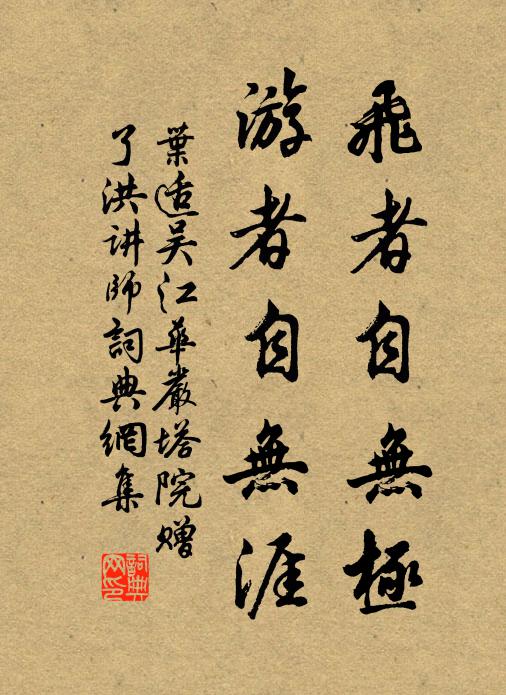 飛者自無極
游者自無涯
葉適吳江華嚴塔院贈
了洪讲師詞典網集
詞典网印